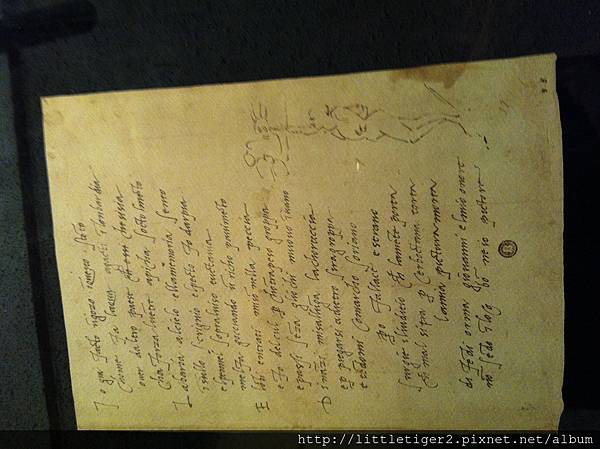 I o gia facto ngozo somesto stento
chome fa lacqua agacti ilombardia
over daltro paese che chesisia
cha forza luetre apicha socto lmeto
L abarba alcielo ellamemoria sento
isullo scrignio elpecto fo darpia
elpennel sopraluiso tuctauia
melfa gocciando u richo pauimeto
E lobi entrati miso nella peccia
e fo delcul p chotrapeso groppa
e passi seza gliochi muouo inuano
D inazi misalluga lachorteccia
e p piegarsi adietro siragroppa
e tedomi comarcho soriano
po fallace e strano
surgie iluditio ch lamete porta
ch mal sitra p cerboctana torta
lamia pictura morta
difedi orma giouanni elmio onore
no sedo ilog bo ne io pictore
http://littletiger2.pixnet.net/album